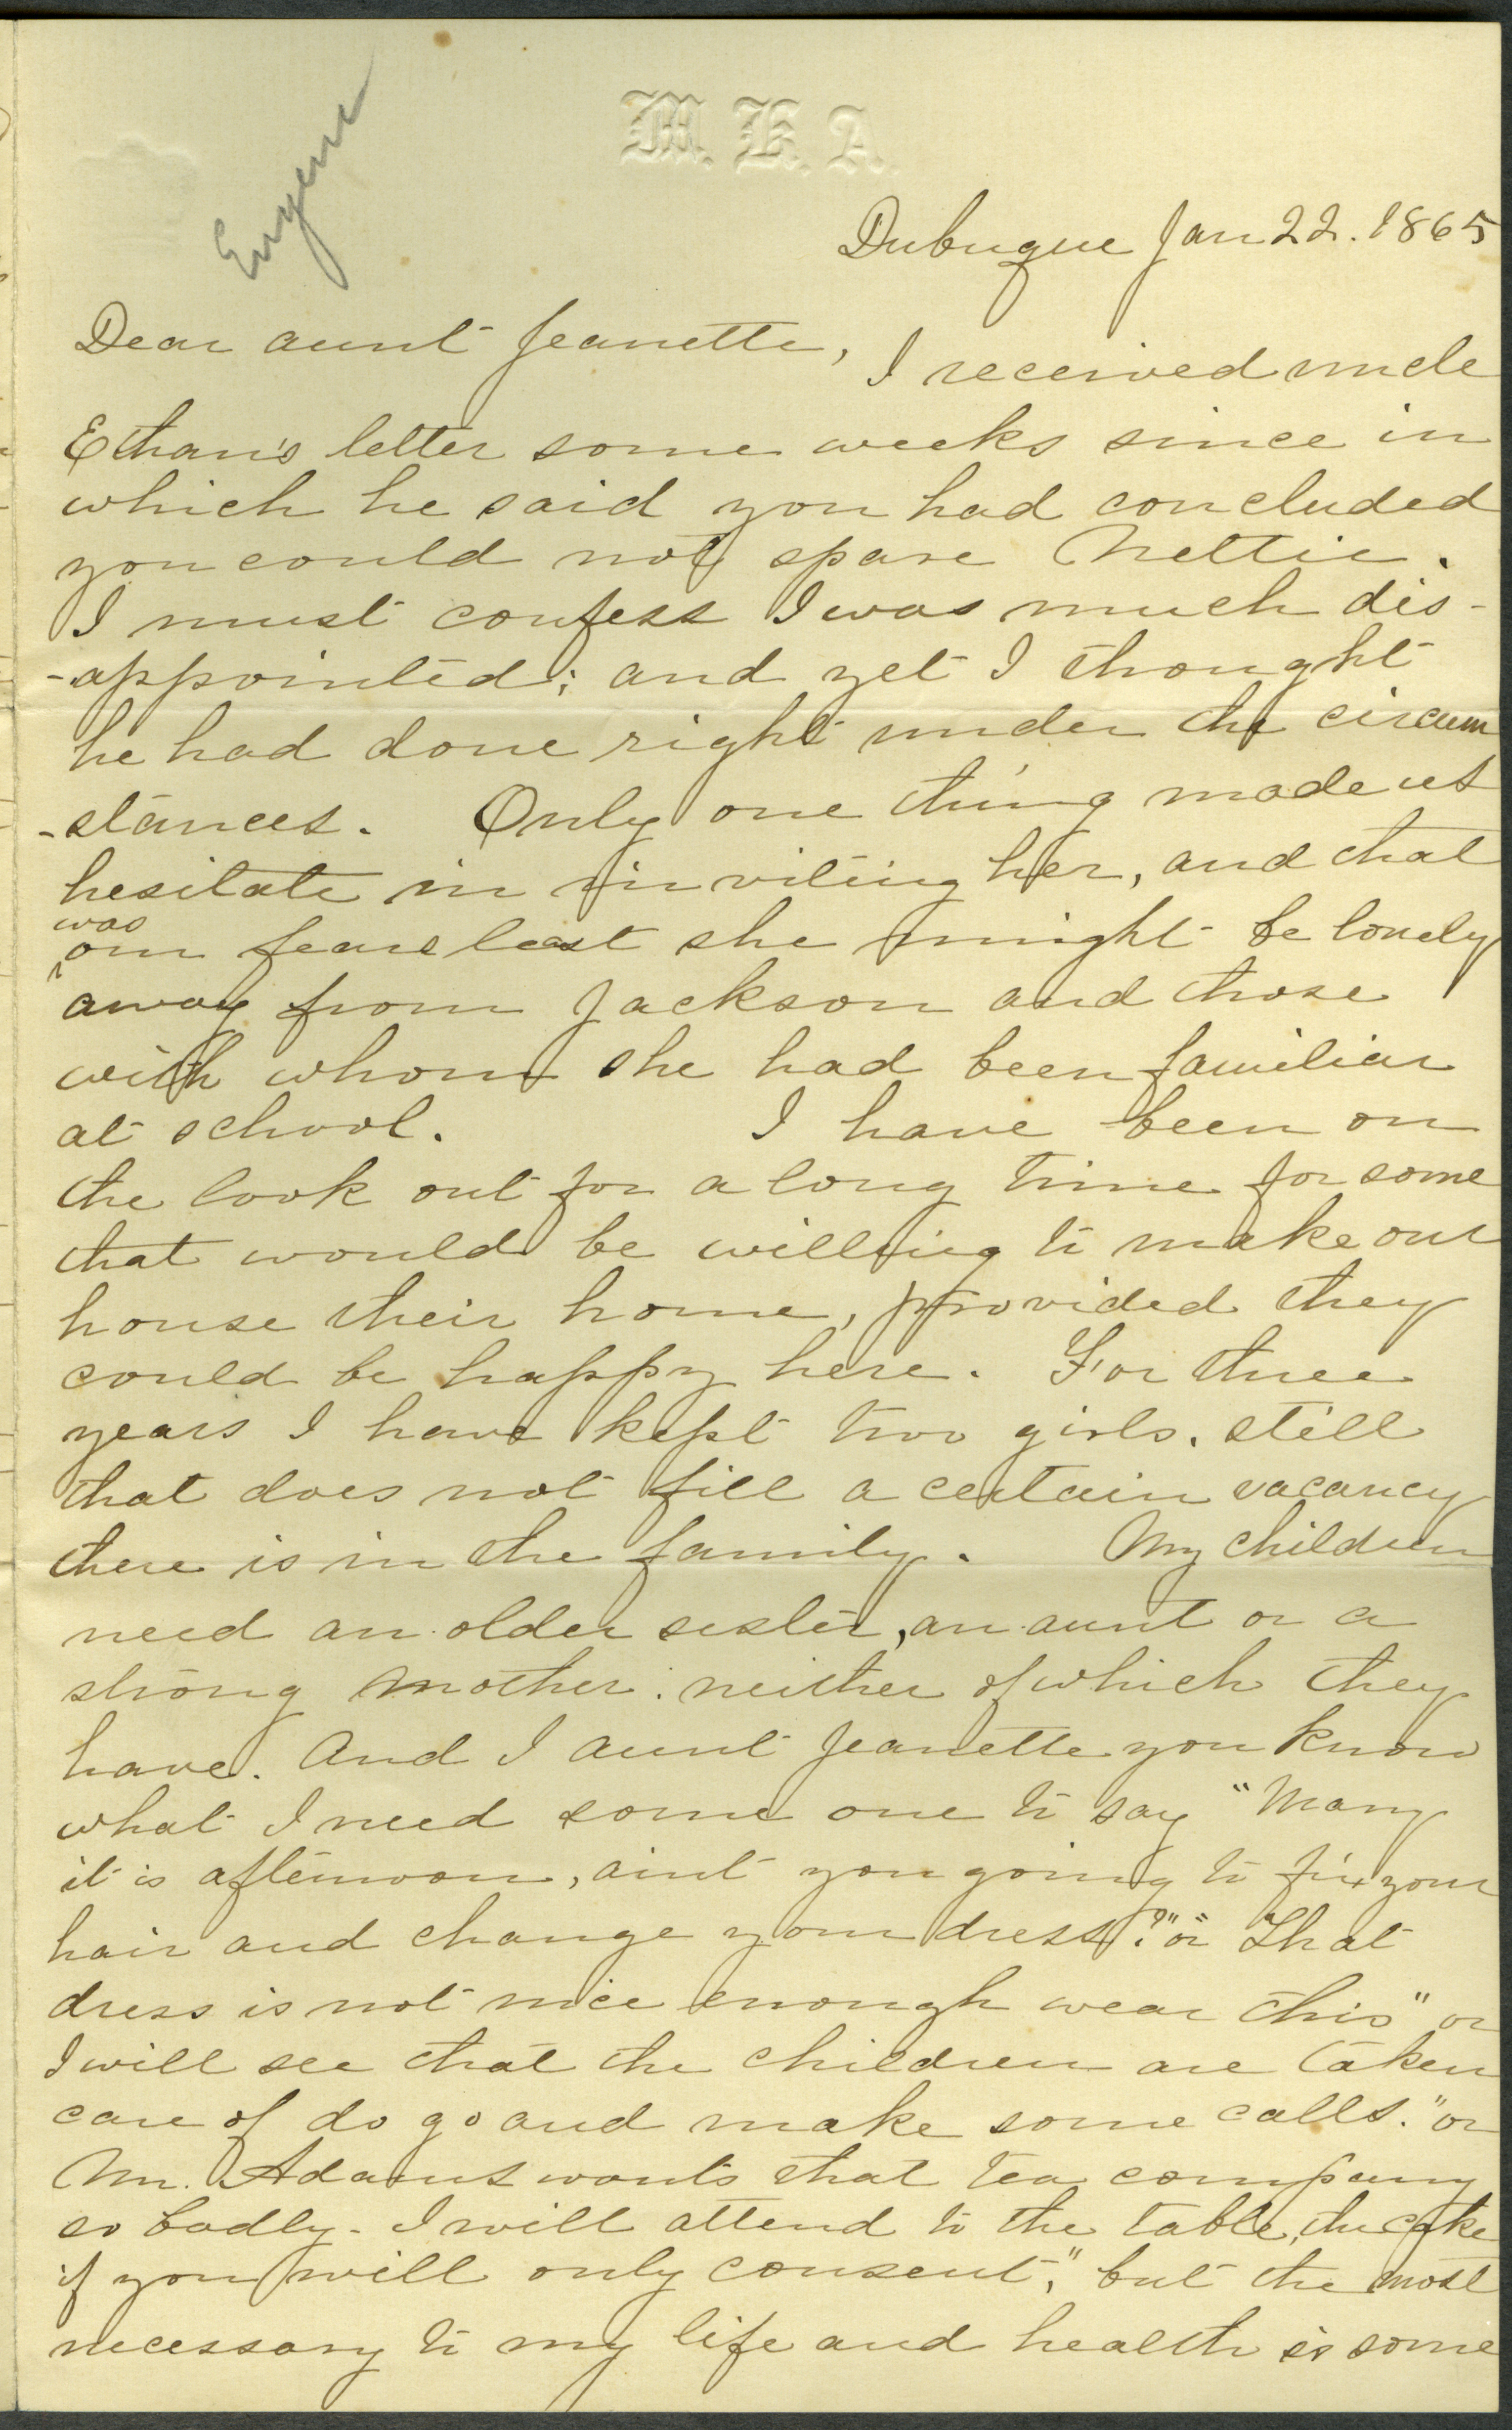 M. K. A.
Eugene
Dubuque Jan 22. 1865
Dear aunt Jeanette,
I received uncle
Ethan's letter some weeks since in
which he said you had concluded
you could not spare Nettie.
I must confess I was much dis-
-appointed; and yet I thought
he had done right under the circum
-stances. Only one thing made us
hesitate in inviting her, and that
was
our fears least she might be lonely
away from Jackson and those
with whom she had been familiar
at school. I have been on
the look out for a long time for some
that would be willing to make our
house their home, provided they
could be happy here. For three
years I have kept two girls. still
that does not fill a certain vacancy
there is in the family. My children
need an older sister, an aunt or a
strong mother. neither of which they
have. And I aunt Jeanette you know
what I need some one to say "Mary
it is afternoon, aint you going to fix your
hair and change your dress?" or "That
dress is not nice enough wear this" or
I will see that the children are taken
care of do go and make some calls." or
Mr. Adams wants that tea company
so badly - I will attend to the table, the cake
if you will only consent," but the most
necessary to my life and health is some